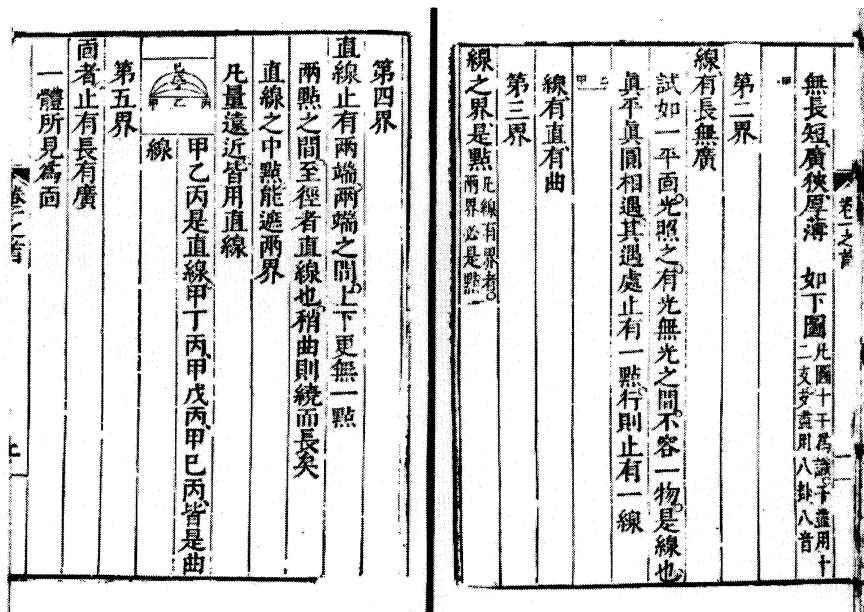 無長短廣狹厚薄　如下圖凡圖十干爲識干盡用十
二支支盡用八卦八音
甲
第二界
線有長無廣
試如一平面光照之有光無光之間不容一物是線也
眞平眞圓相遇其遇處止有一點行則止有一線
甲　乙
線有直有曲
第三界
線之界是點凡線有界者
兩界必是點
卷一之首
一
第四界
直線止有兩端兩端之間上下更無一點
兩點之間至徑者直線也稍曲則繞而長矣
直線之中點能遮兩界
凡量遠近皆用直線
甲　乙　丙
甲乙丙是直線甲丁丙甲戊丙甲己丙皆是曲
線
第五界
面者止有長有廣
一體所見爲面
卷一之首